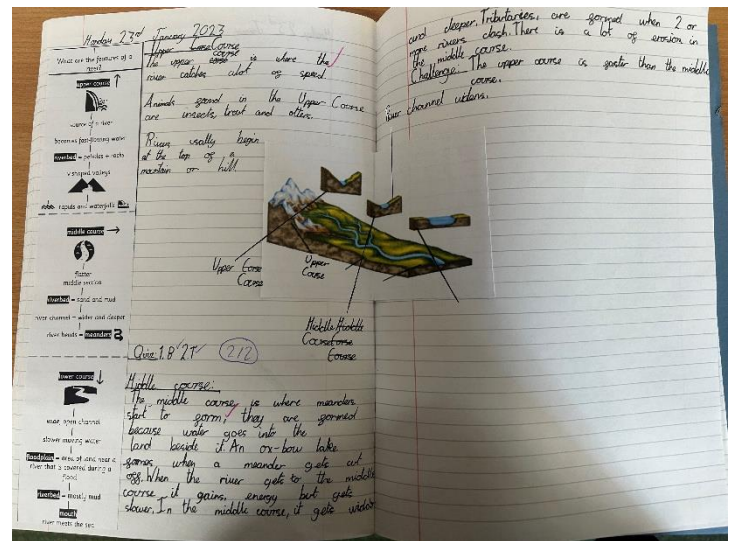 Monday 23rd January 2023
What are the features of a
river?
upper course
source of a river
becomes fast-flowing water
riverbed = pebbles + rocks
v shaped valleys
rapids and waterfalls
middle course
flatter
middle section
riverbed = sand and mud
river channel = wider and deeper
river bends = meanders
lower course
wide, open channel
slower moving water
floodplain = area of land near a
river that is covered during a
flood
riverbed = mostly mud
mouth
river meets the sea
Upper Corse Course
course
The upper corse is where the
river catches alot of speed.
Animals found in the Upper Course
are insects, trout and otters.
Rivers usally begin
at the top of a
mountain or hill.
Upper Corse
Course
Upper
Course
Middle Middle
Course Corse
Course
Quiz 1.B 2T 2/2
Middle course:
The middle course is where meanders
start to form, they are formed
because water goes into the
land beside it. An ox-bow lake
forms when a meander gets cut
off. When the river gets to the middle
course it gains energy but gets
slower. In the middle course, it gets wider
and deeper. Tributaries, are formed when 2 or
more rivers clash. There is a lot of erosion in
the middle course.
Challenge: The upper course is faster than the middle
course.
River channel widens.